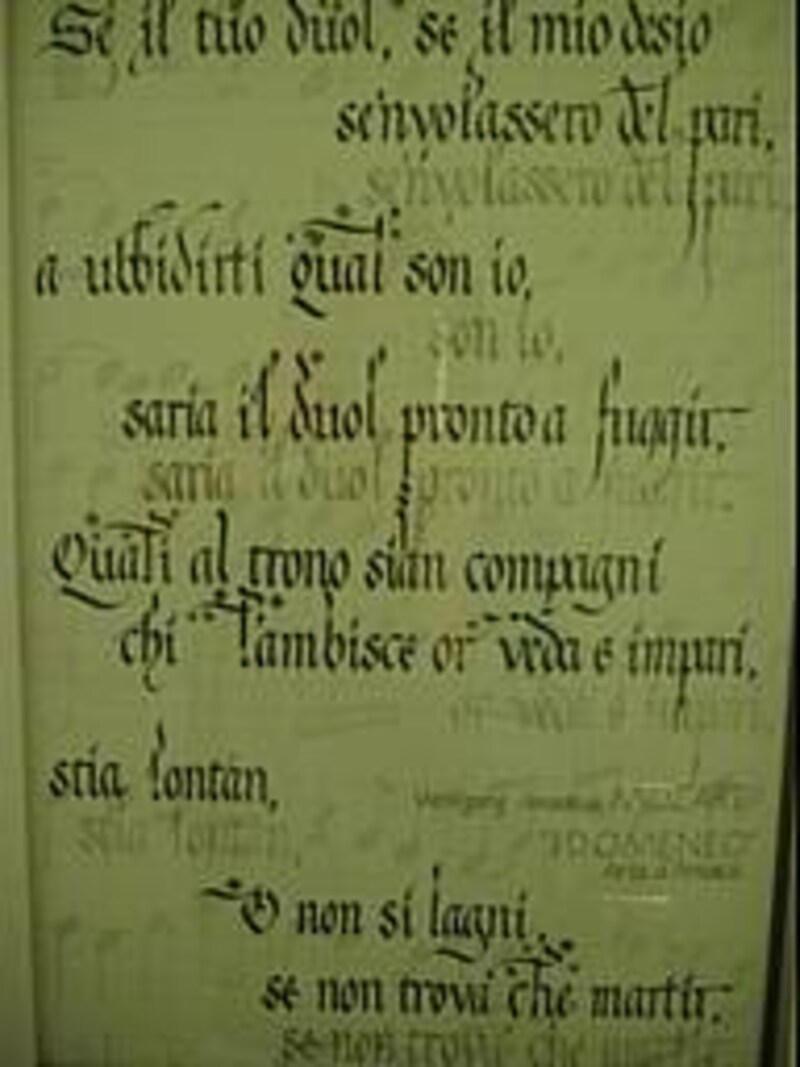 Se il tuo duol, se il mio desio
se'nvolassero del pari,
a ubbidirti qual son io,
saria il duol pronto a fuggir.
Quali al trono sian compagni
chi l'ambisce or veda e impari,
stia lontan,
Wolfgang Amadeus MOZART
"IDOMENEO"
O non si lagni,
se non trova che martir.